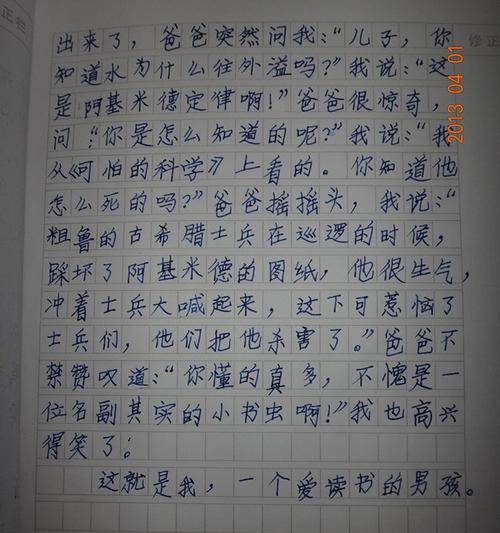 出来了，爸爸突然问我：“儿子，你
知道水为什么往外溢吗？”我说：“这
是阿基米德定律啊！”爸爸很惊奇，
问：“你是怎么知道的呢？”我说：“我
从《可怕的科学》上看的。你知道他
怎么死的吗？”爸爸摇摇头，我说：“
粗鲁的古希腊士兵在巡逻的时候，
踩坏了阿基米德的图纸，他很生气，
冲着士兵大喊起来，这下可惹恼了
士兵们，他们把他杀害了。”爸爸不
禁赞叹道：“你懂的真多，不愧是一
位名副其实的小书虫啊！”我也高兴
得笑了。
这就是我，一个爱读书的男孩。
修正
2013 04 01